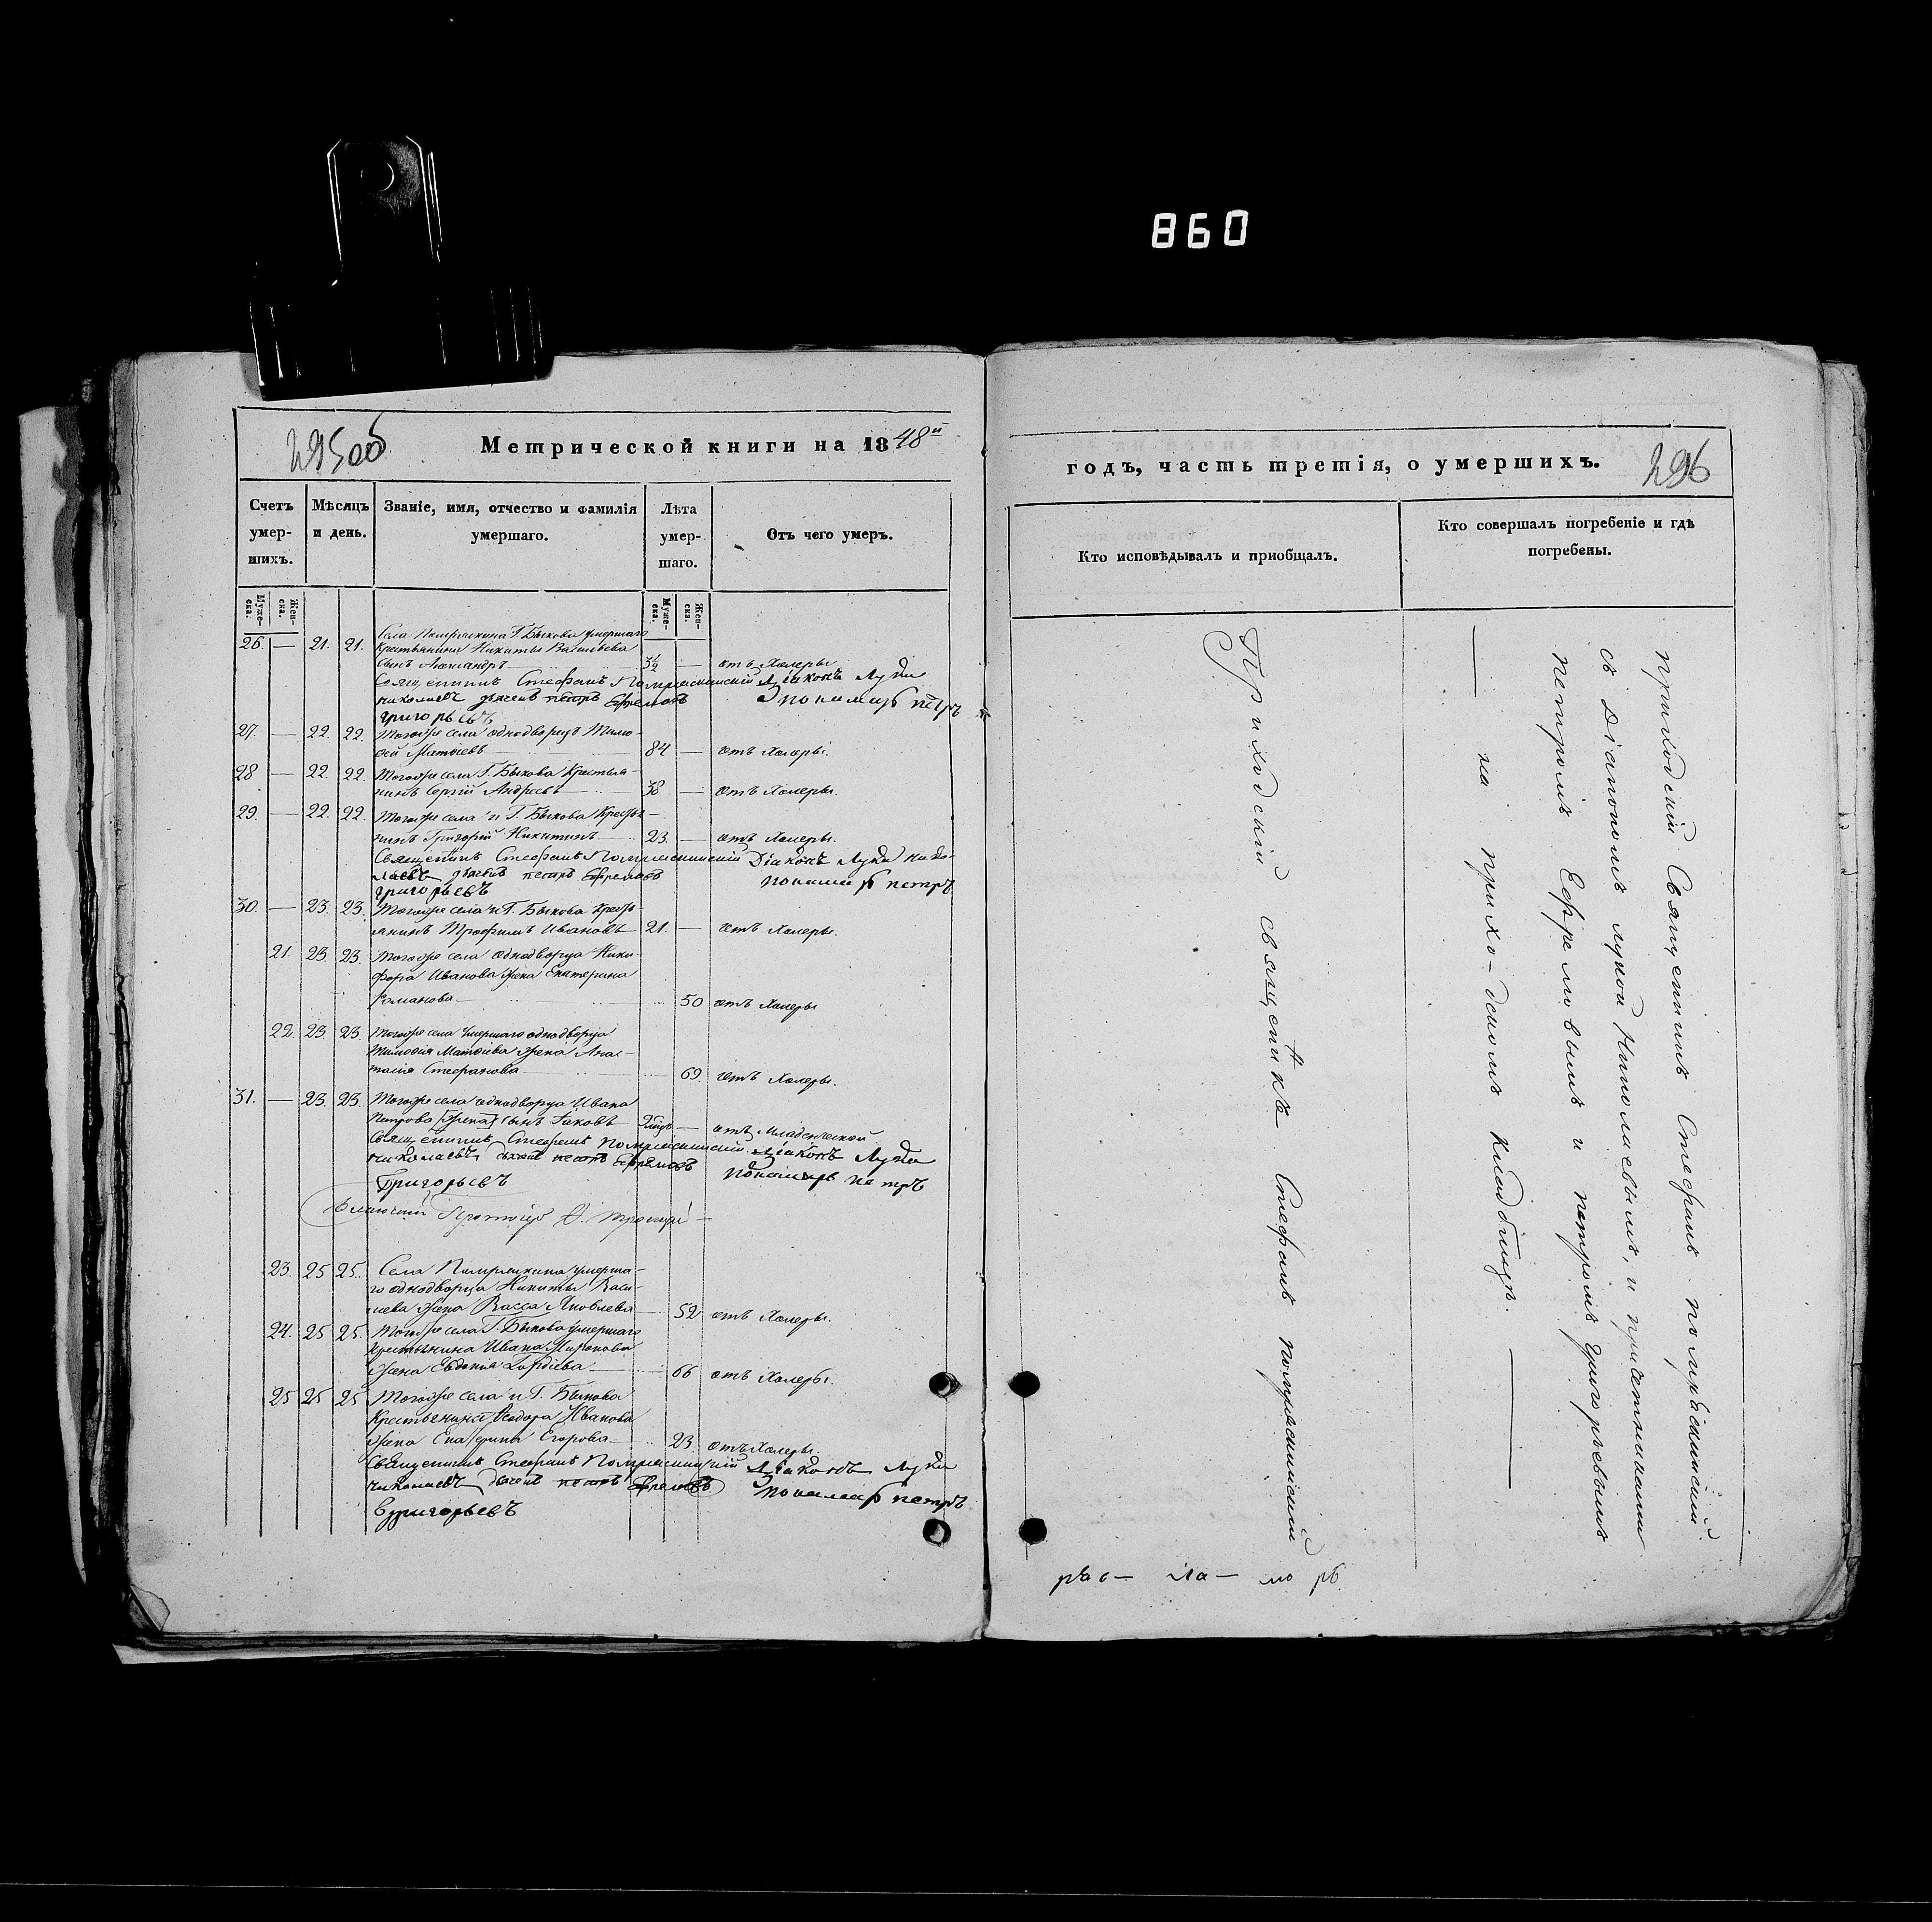 860
295об
Метрической книги на 1848й
Счетъ умер-шихъ.
Мѣсяцъ и день.
Званіе, имя, отчество и фамилія умершаго.
Лѣта умер-шаго.
Отъ чего умеръ.
Муже-ска.
Жен-ска.
Муже-ска.
Жен-ска.
26. — 21. 21. Села Г. Быкова умершаго
крестьянина Никиты Васильева
сынъ Александръ — 3½ — отъ Холеры
Священникъ Стефанъ Діаконъ Лука
Николаевъ дьячекъ петръ Ефремовъ пономарь петръ
григорьевъ
27. — 22. 22. Тогоже села однодворецъ Тимо-
фей Матвѣевъ — 84 — отъ Холеры.
28 — 22. 22. Тогоже села Г. Быкова крестья-
нинъ Сергій Андреевъ — 38 — отъ Холеры.
29. — 22. 22. Тогоже села и Г. Быкова Кресть-
нинъ Григорій Никитинъ — 23. — отъ Холеры.
Священникъ Стефанъ Діаконъ Лука Нико-
лаевъ дьячекъ петръ Ефремовъ пономарь петръ
григорьевъ
30. — 23. 23. Тогоже села и Г. Быкова Кресть-
янинъ Трофимъ Ивановъ 21. — отъ Холеры.
21. 23. 23. Тогоже села однодворца Ники-
фора Иванова жена Екатерина
Романова — 50 отъ Холеры
22. 23. 23. Тогоже села умершаго однодворца
Тимофія Матвіева жена Анас-
тасія Стефанова — 69. отъ Холеры.
31. — 23. 23. Тогоже села однодворца Ивана
Петрова [жена] сынъ Іаковъ — отъ Младенческой
Священникъ Стефанъ Діаконъ Лука
николаевъ дьячекъ петръ Ефремовъ пономарь петръ
Григорьевъ
23. 25 25. Села умерша-
го однодворца Никиты Васи-
лева жена Васса Яковлева — 52 отъ Холеры.
24. 25 25. Тогоже села Г. Быкова умершаго
крестьянина Ивана Миронова
жена Евдокія Гордѣева — 66 отъ Холеры.
25 25 25 Тогоже села и Г. Быкова
Крестьянина Ѳеодора Иванова
жена Екатерина Егорова — 23 отъ Холеры.
Священникъ Стефанъ Діаконъ Лука
николаевъ дьячекъ петръ Ефремовъ пономарь петръ
григорьевъ
годъ, часть третія, о умершихъ.
296
Кто исповѣдывалъ и приобщалъ.
Кто совершалъ погребеніе и гдѣ погребены.
Приходскій священникъ Стефанъ
приходскій Священникъ Стефанъ
съ Діакономъ лукой Николаевымъ, и причетниками
петромъ Ефремовымъ и петромъ григорьевымъ
— на прихо-дскомъ кладбищѣ. —